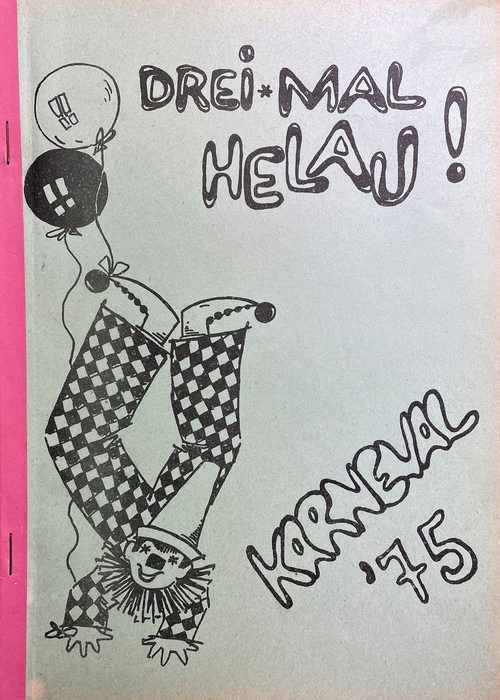 DREI*MAL
HELAU!
KARNEVAL
'75